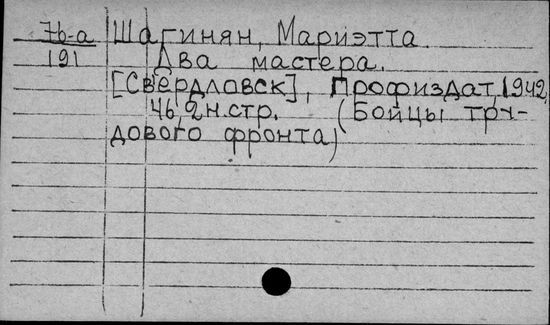 7б-а Шагинян, Мариэтта.
191 Два мастера.
[Свердловск], Профиздат, 1942
46, 2 н.стр. (Бойцы тру-
дового фронта)